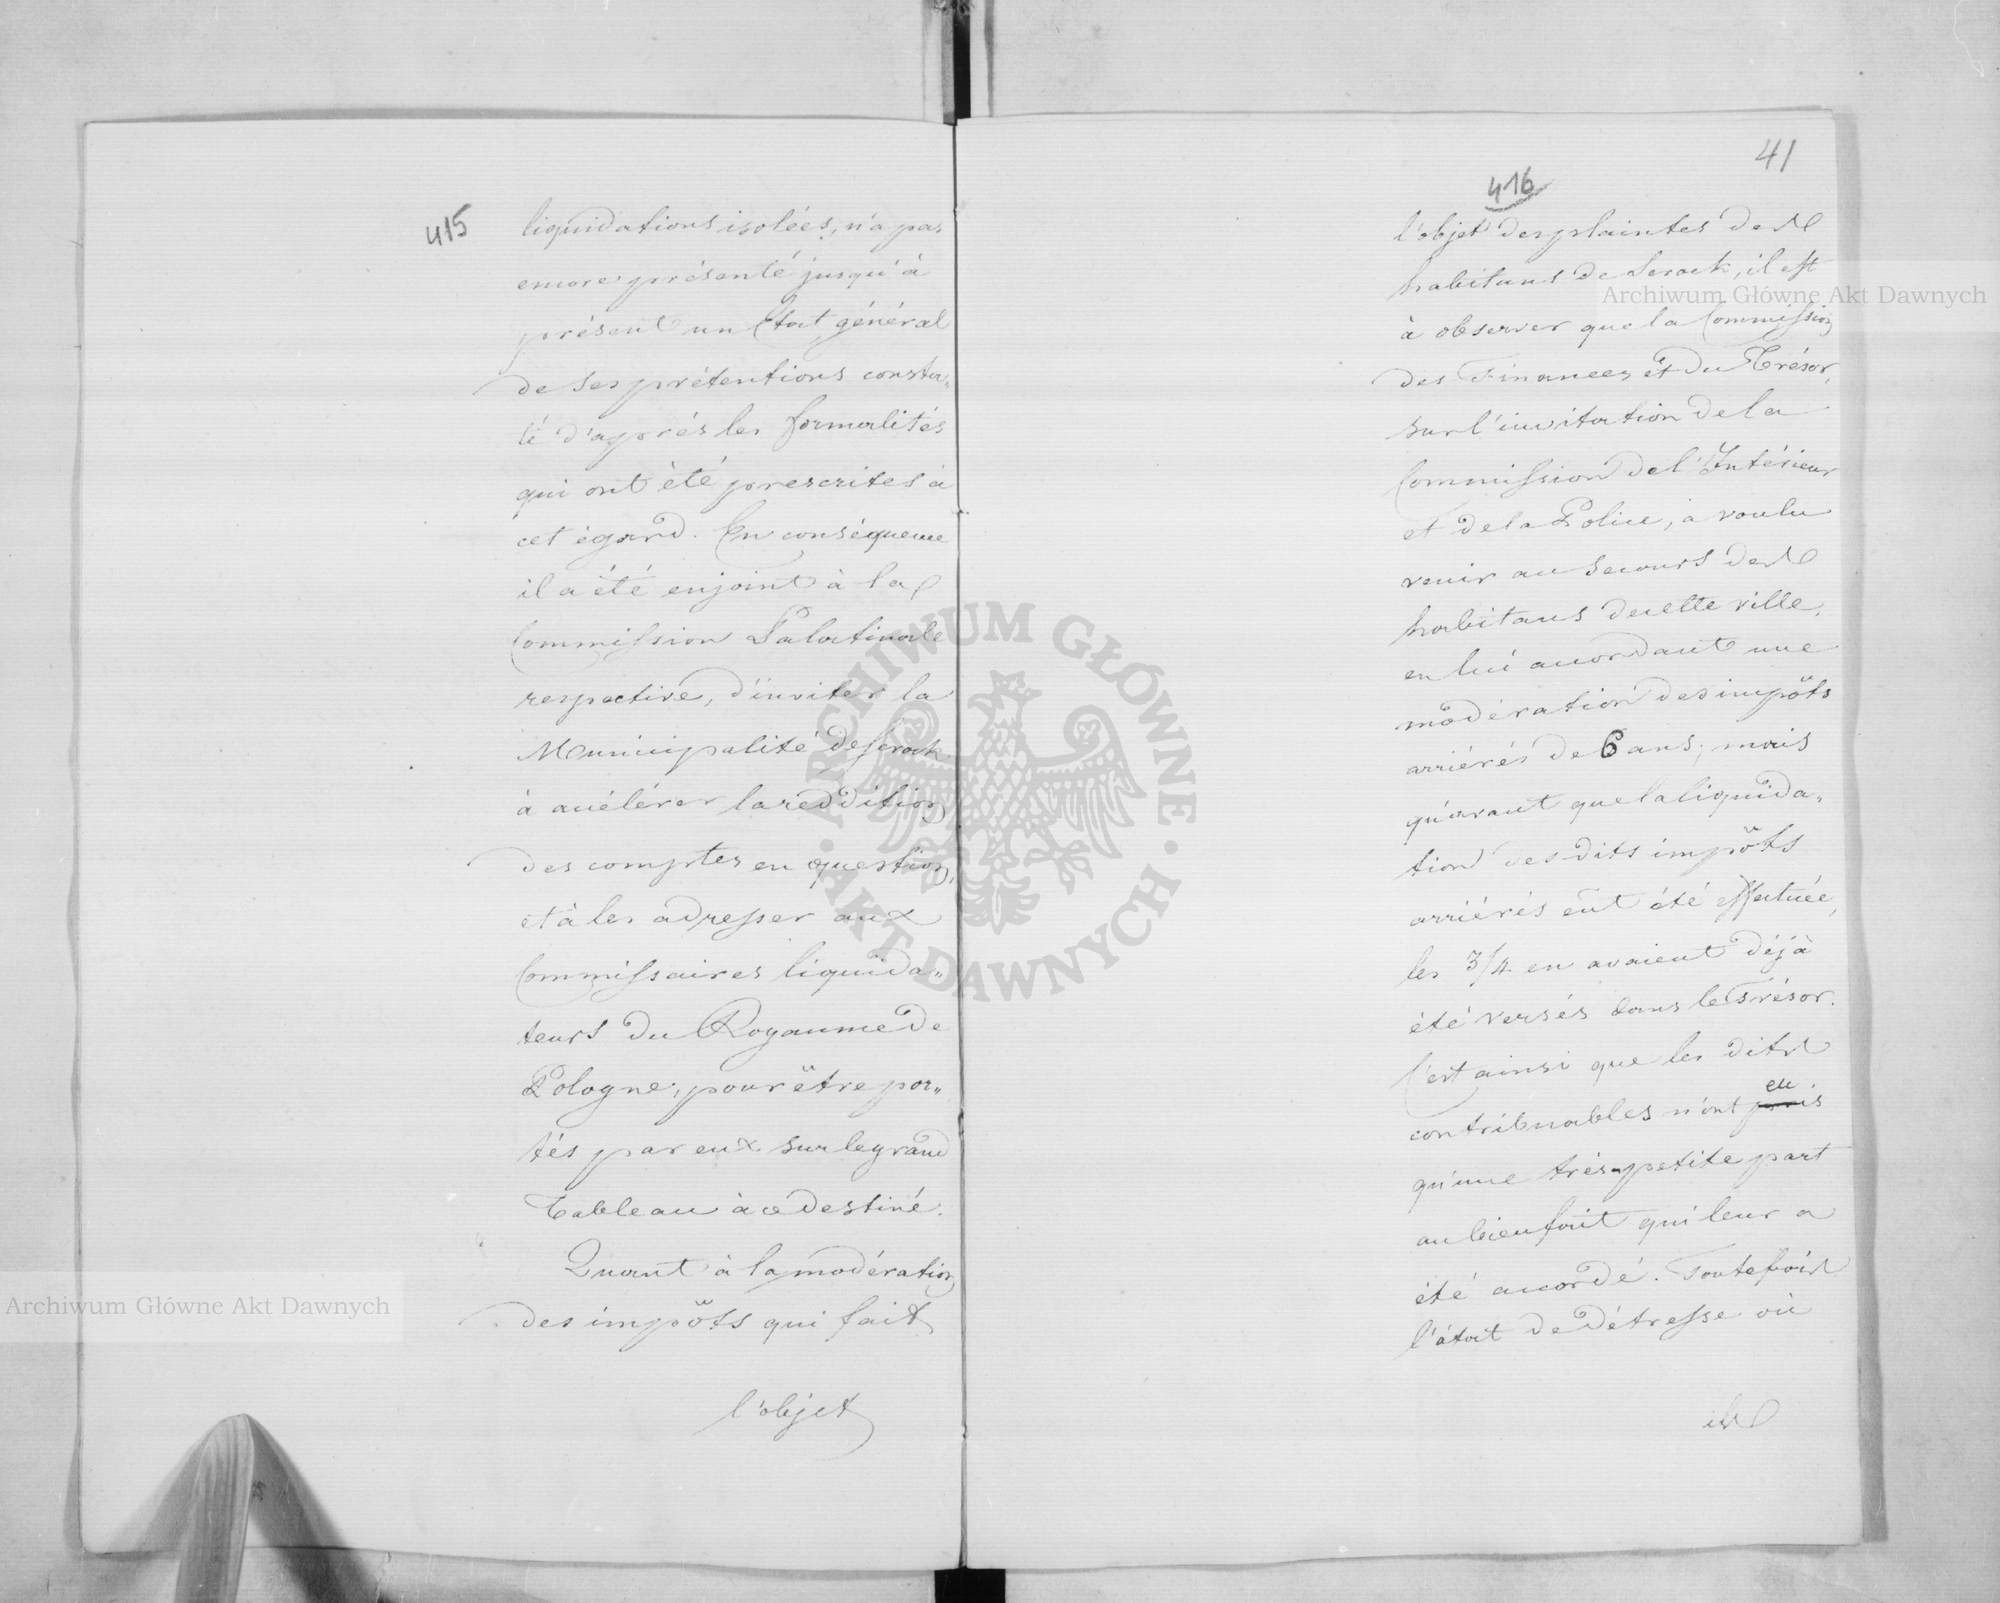 415
liquidations isolées, n'a pas
encore présenté jusqu'à
présent un Etat général
de ses prétentions consta„
té d'après les formalités
qui ont été prescrites à
cet égard. En conséquence
il a été enjoint à la
Commission Palatinale
respective, d'inviter la
Municipalité de Serock
à accélérer la reddition
des comptes en question,
et à les adresser aux
Commissaires liquida„
teurs du Royaume de
Pologne, pour être por„
tés par eux sur le grand
Tableau à ce destiné.
Quant à la modération
des impôts qui fait
l'objet
41
416
l'objet des plaintes des
habitans de Serock, il est
à observer que la Commission
des Finances et du Trésor,
sur l'invitation de la
Commission de l'Intérieur
et de la Police, a voulu
venir au secours des
habitans de cette ville,
en lui accordant une
modération des impôts
arriérés de 6 ans; mais
qu'avant que la liquida„
tion des dits impôts
arriérés eût été effectuée,
les 3/4 en avaient déjà
été versés dans le Trésor.
C'est ainsi que les dits
contribuables n'ont pris eu
qu'une très petite part
au bienfait qui leur a
été accordé. Toutefois
l'état de détresse où
ils
Archiwum Główne Akt Dawnych
Archiwum Główne Akt Dawnych
ARCHIWUM GŁÓWNE · AKT DAWNYCH ·